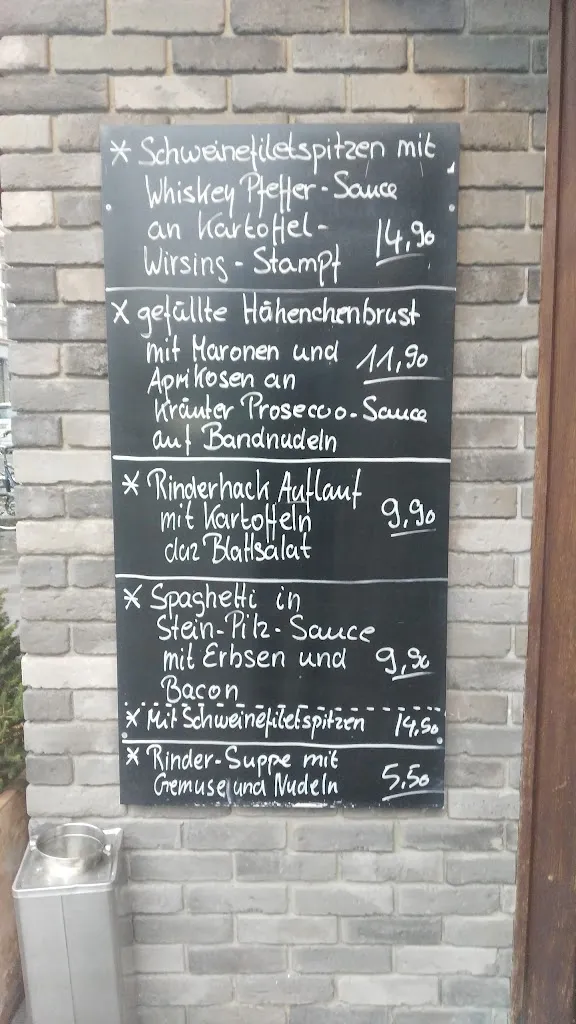 * Schweinefiletspitzen mit
Whiskey Pfeffer-Sauce
an Kartoffel-
Wirsing-Stampf 14,90
* gefüllte Hähenchenbrust
mit Maronen und 11,90
Aprikosen an
Kräuter Prosecco-Sauce
auf Bandnudeln
* Rinderhack Auflauf
mit Kartoffeln 9,90
daz Blattsalat
* Spaghetti in
Stein-Pilz-Sauce
mit Erbsen und 9,90
Bacon
* Mit Schweinefiletspitzen 14,50
* Rinder-Suppe mit
Gemüse und Nudeln 5,50